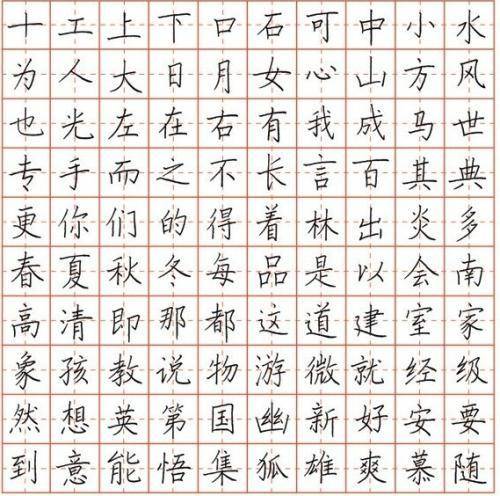 十工上下口石可中小水
为人大日月女心山方风
也光左在右有我成马世
专手而之不长言百其典
更你们的得着林出炎多
春夏秋冬每品是以会南
高清即那都这道建室家
象孩教说物游微就经级
然想英第国幽新好安要
到意能悟集狐雄爽慕随